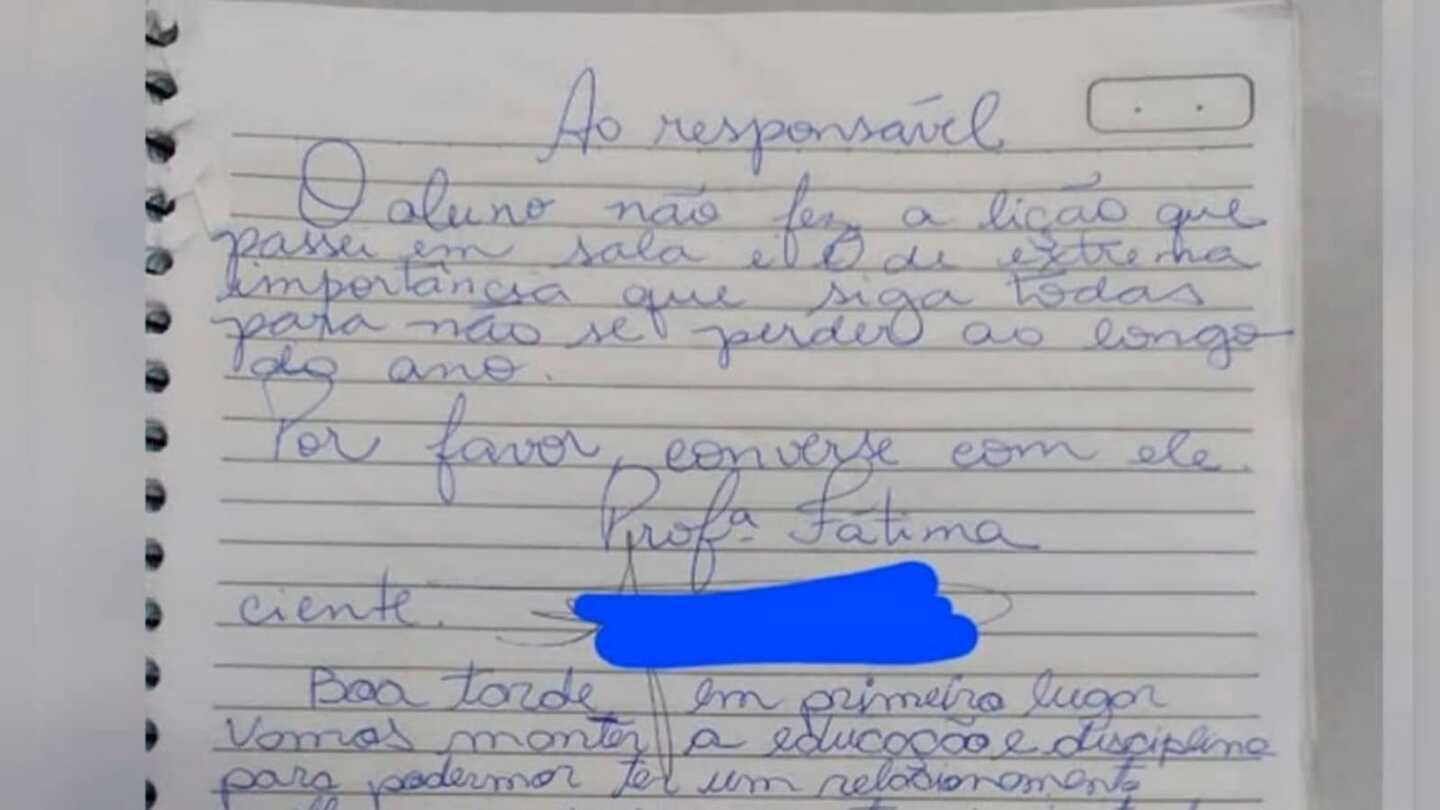 Ao responsável
O aluno não fez a lição que
passei em sala e é de extrema
importância que siga todas
para não se perder ao longo
do ano.
Por favor, converse com ele.
Profª. Fátima
ciente.
Boa tarde, em primeiro lugar
Vamos manter a educação e disciplina
para podermos ter um relacionamento